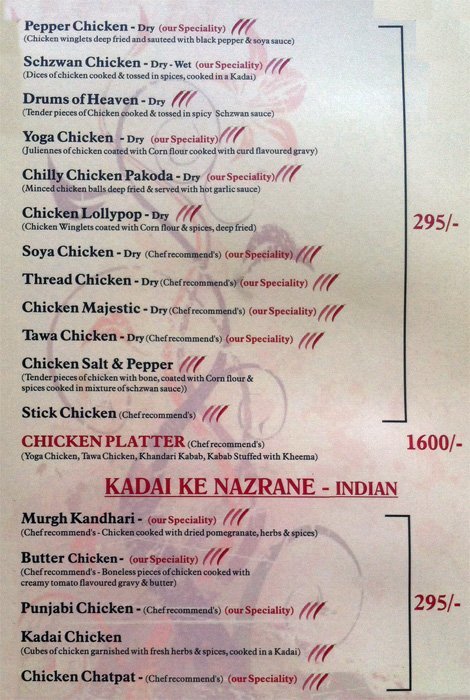 Pepper Chicken - Dry (our Speciality)
(Chicken winglets deep fried and sauteed with black pepper & soya sauce)
Schzwan Chicken - Dry - Wet (our Speciality)
(Dices of chicken cooked & tossed in spices, cooked in a Kadai)
Drums of Heaven - Dry
(Tender pieces of Chicken cooked & tossed in spicy Schzwan sauce)
Yoga Chicken - Dry (our Speciality)
(Juliennes of chicken coated with Corn flour cooked with curd flavoured gravy)
Chilly Chicken Pakoda - Dry (our Speciality)
(Minced chicken balls deep fried & served with hot garlic sauce)
Chicken Lollypop - Dry
(Chicken Winglets coated with Corn flour & spices, deep fried)
295/-
Soya Chicken - Dry (Chef recommend's) (our Speciality)
Thread Chicken - Dry (Chef recommend's) (our Speciality)
Chicken Majestic - Dry (Chef recommend's) (our Speciality)
Tawa Chicken - Dry (Chef recommend's) (our Speciality)
Chicken Salt & Pepper
(Tender pieces of chicken with bone, coated with Corn flour &
spices cooked in mixture of schzwan sauce))
Stick Chicken (Chef recommend's)
CHICKEN PLATTER (Chef recommend's) 1600/-
(Yoga Chicken, Tawa Chicken, Khandari Kabab, Kabab Stuffed with Kheema)
KADAI KE NAZRANE - INDIAN
Murgh Kandhari - (our Speciality)
(Chef recommend's - Chicken cooked with dried pomegranate, herbs & spices)
Butter Chicken - (our Speciality)
(Chef recommend's - Boneless pieces of chicken cooked with
creamy tomato flavoured gravy & butter)
Punjabi Chicken - (Chef recommend's) (our Speciality) 295/-
Kadai Chicken
(Cubes of chicken garnished with fresh herbs & spices, cooked in a Kadai)
Chicken Chatpat - (Chef recommend's) (our Speciality)